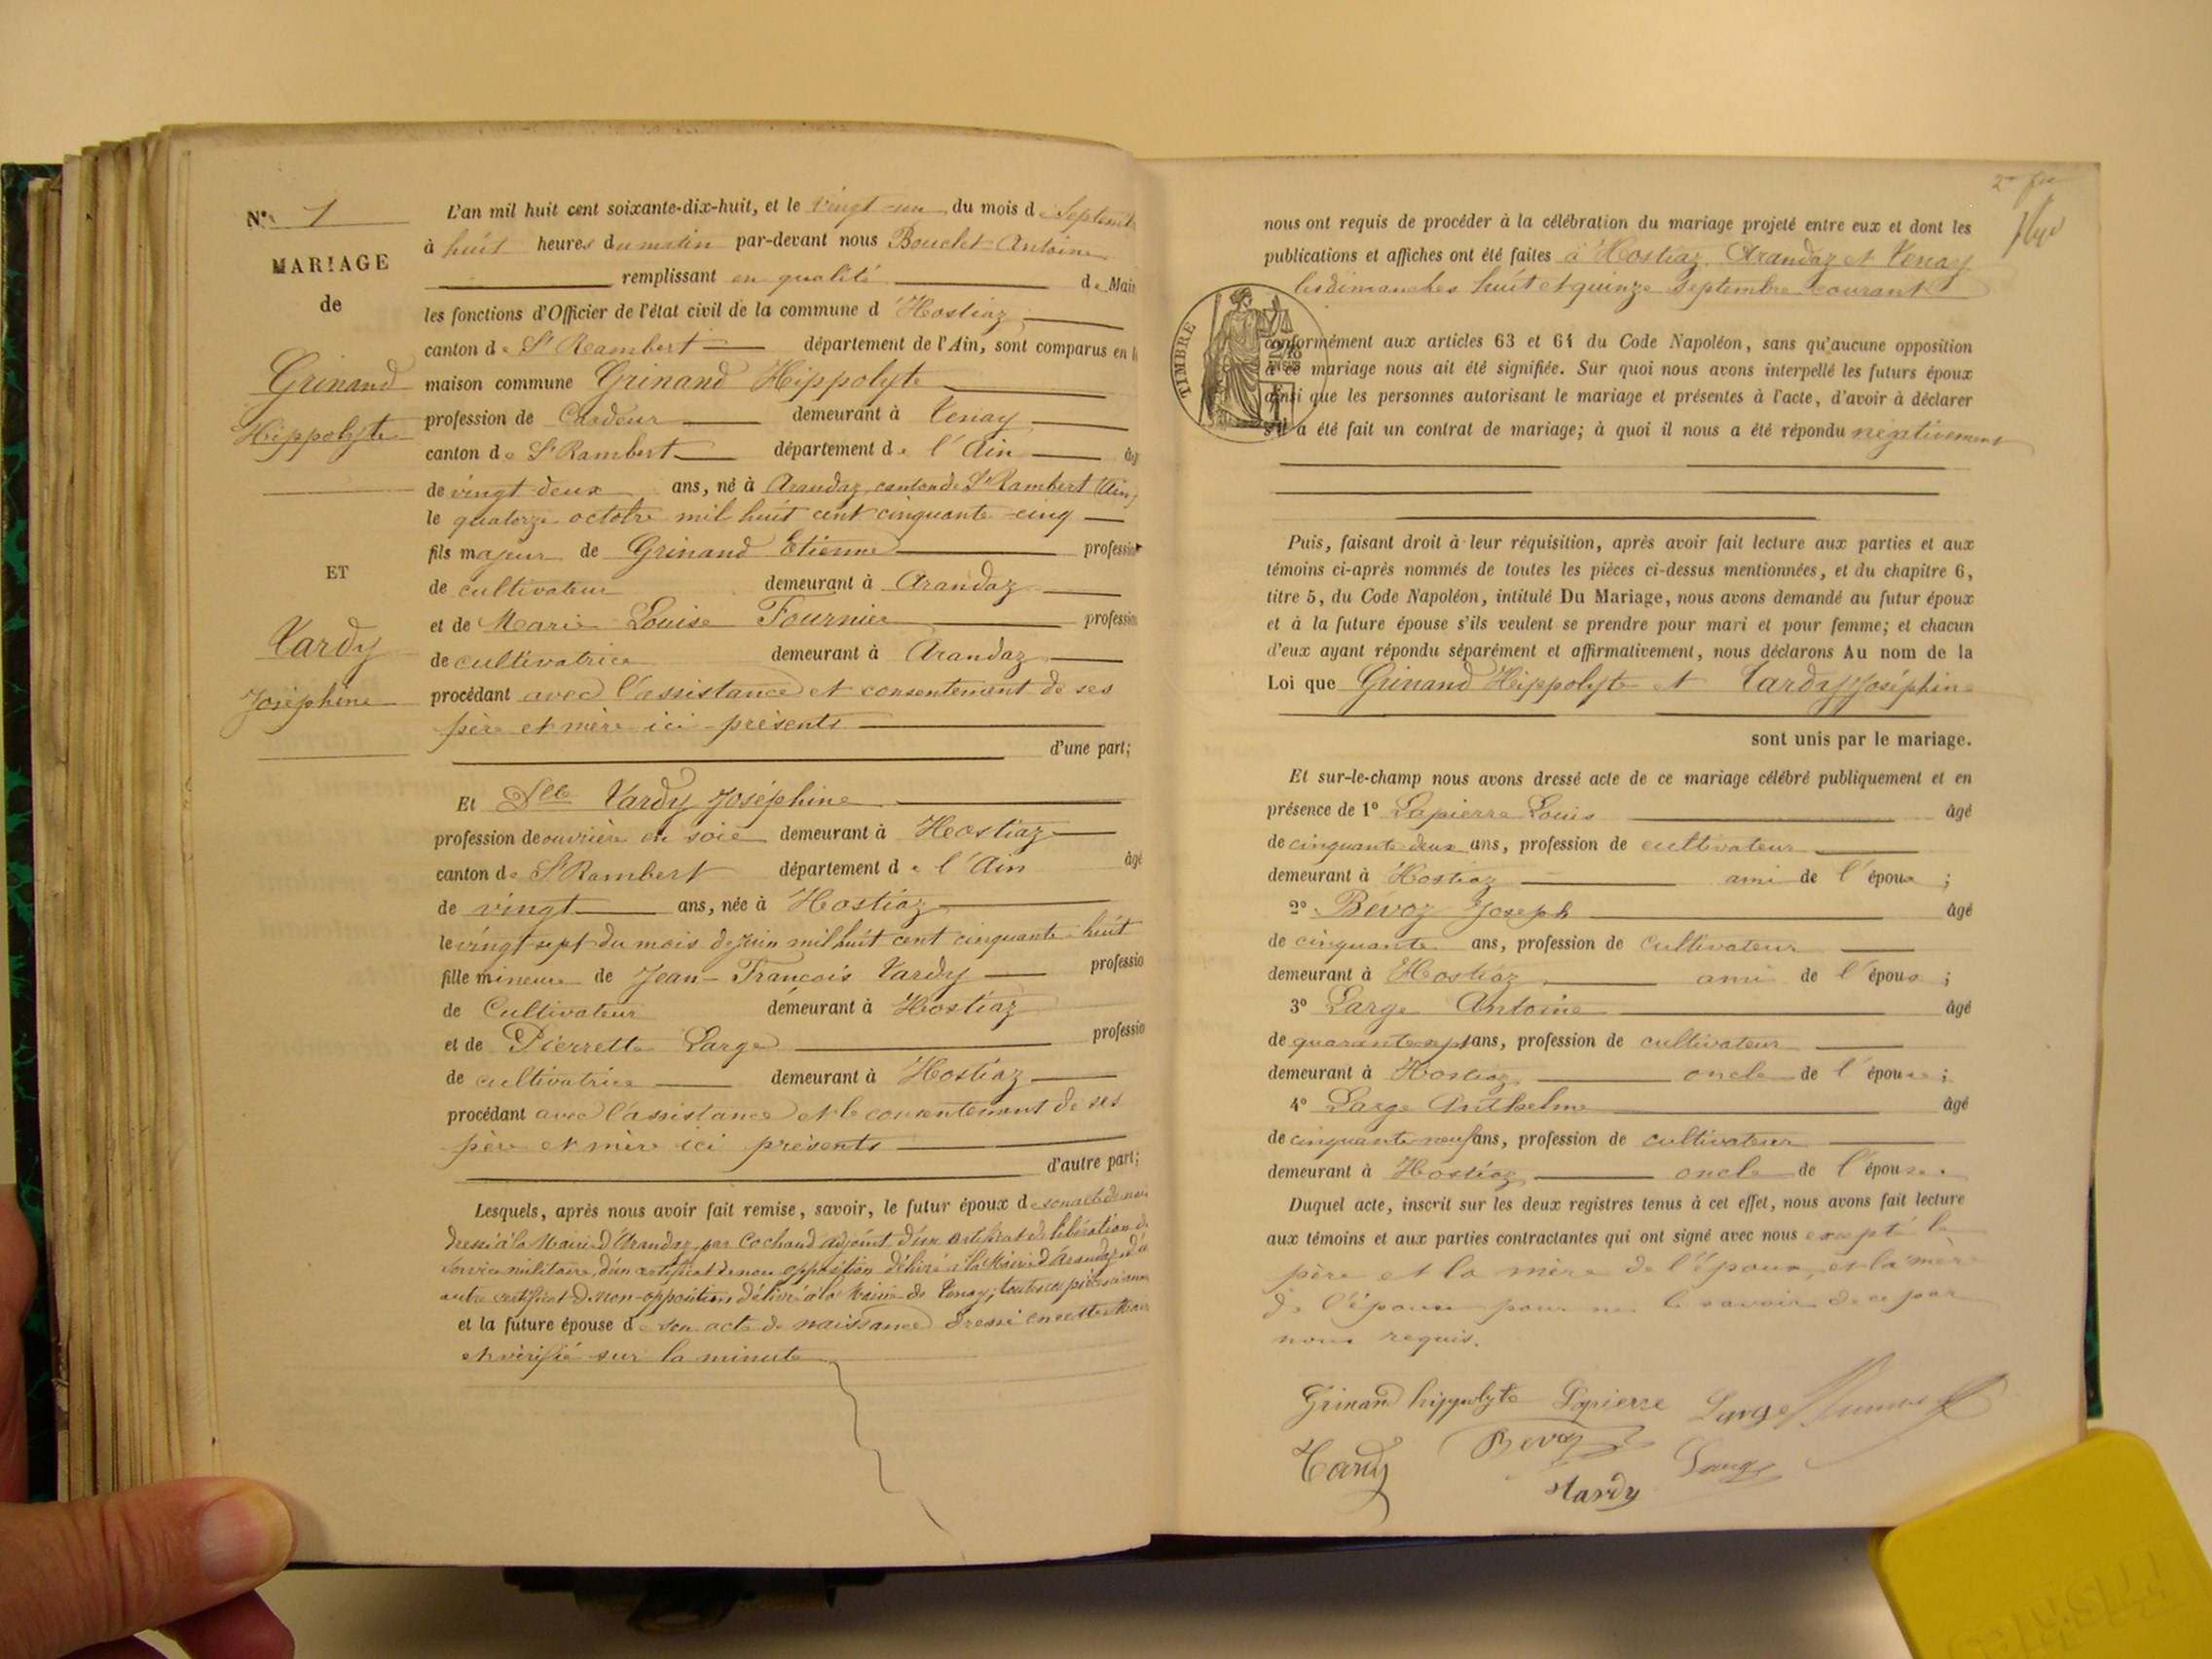 N° 1
MARIAGE
de
Grinand
Hippolyte
ET
Tardy
Joséphine
L'an mil huit cent soixante-dix-huit, et le vingt-un du mois de Septemb
à huit heures du matin par-devant nous Bouclet Antoine
remplissant en qualité de Mair
les fonctions d'Officier de l'état civil de la commune d'Hostiaz
canton de St Rambert département de l'Ain, sont comparus en l
maison commune Grinand Hippolyte
profession de Cardeur demeurant à Tenay
canton de St Rambert département de l'Ain âg
de vingt deux ans, né à Arandaz, canton de St Rambert (Ain)
le quatorze octobre mil huit cent cinquante-cinq
fils majeur de Grinand Etienne profession
de cultivateur demeurant à Arandaz
et de Marie Louise Fournier profession
de cultivatrice demeurant à Arandaz
procédant avec l'assistance et consentement de ses
père et mère ici présents
d'une part;
Et Dlle Tardy Joséphine
profession de ouvrière en soie demeurant à Hostiaz
canton de St Rambert département de l'Ain âgé
de vingt ans, née à Hostiaz
le vingt sept du mois de Juin mil huit cent cinquante-huit
fille mineure de Jean-Francois Tardy professio
de Cultivateur demeurant à Hostiaz
et de Pierrette Large professio
de cultivatrice demeurant à Hostiaz
procédant avec l'assistance et le consentement de ses
père et mère ici présents
d'autre part;
Lesquels, après nous avoir fait remise, savoir, le futur époux de son acte de nais
dressé à la Mairie d'Arandaz par Cochaud adjoint d'un certificat de libération du
Service militaire, d'un certificat de non opposition délivré à la Mairie d'Arandaz, d'un
autre certificat de non-opposition délivré à la Mairie de Tenay; toutes ces pièces
et la future épouse de son acte de naissance dressé en cette Mair
et vérifié sur la minute
nous ont requis de procéder à la célébration du mariage projeté entre eux et dont les
publications et affiches ont été faites à Hostiaz, Arandaz et Tenay
les dimanches huit et quinze Septembre courant
TIMBRE
conformément aux articles 63 et 64 du Code Napoléon, sans qu'aucune opposition
à ce mariage nous ait été signifiée. Sur quoi nous avons interpellé les futurs époux
ainsi que les personnes autorisant le mariage et présentes à l'acte, d'avoir à déclarer
s'il a été fait un contrat de mariage; à quoi il nous a été répondu négativement
Puis, faisant droit à leur réquisition, après avoir fait lecture aux parties et aux
témoins ci-après nommés de toutes les pièces ci-dessus mentionnées, et du chapitre 6,
titre 5, du Code Napoléon, intitulé Du Mariage, nous avons demandé au futur époux
et à la future épouse s'ils veulent se prendre pour mari et pour femme; et chacun
d'eux ayant répondu séparément et affirmativement, nous déclarons Au nom de la
Loi que Grinand Hippolyte et Tardy Joséphine
sont unis par le mariage.
Et sur-le-champ nous avons dressé acte de ce mariage célébré publiquement et en
présence de 1° Lapierre Louis âgé
de cinquante deux ans, profession de cultivateur
demeurant à Hostiaz ami de l'époux ;
2° Bévoz Joseph âgé
de cinquante ans, profession de cultivateur
demeurant à Hostiaz ami de l'époux ;
3° Large Antoine âgé
de quarante sept ans, profession de cultivateur
demeurant à Hostiaz oncle de l'épouse ;
4° Large Anthelme âgé
de cinquante-neuf ans, profession de cultivateur
demeurant à Hostiaz oncle de l'épouse.
Duquel acte, inscrit sur les deux registres tenus à cet effet, nous avons fait lecture
aux témoins et aux parties contractantes qui ont signé avec nous excepté le
père et la mère de l'époux, et la mère
de l'épouse pour ne le savoir de ce par
nous requis.
Grinand hippolyte Lapierre Large
Tardy Bevoz Large
Tardy